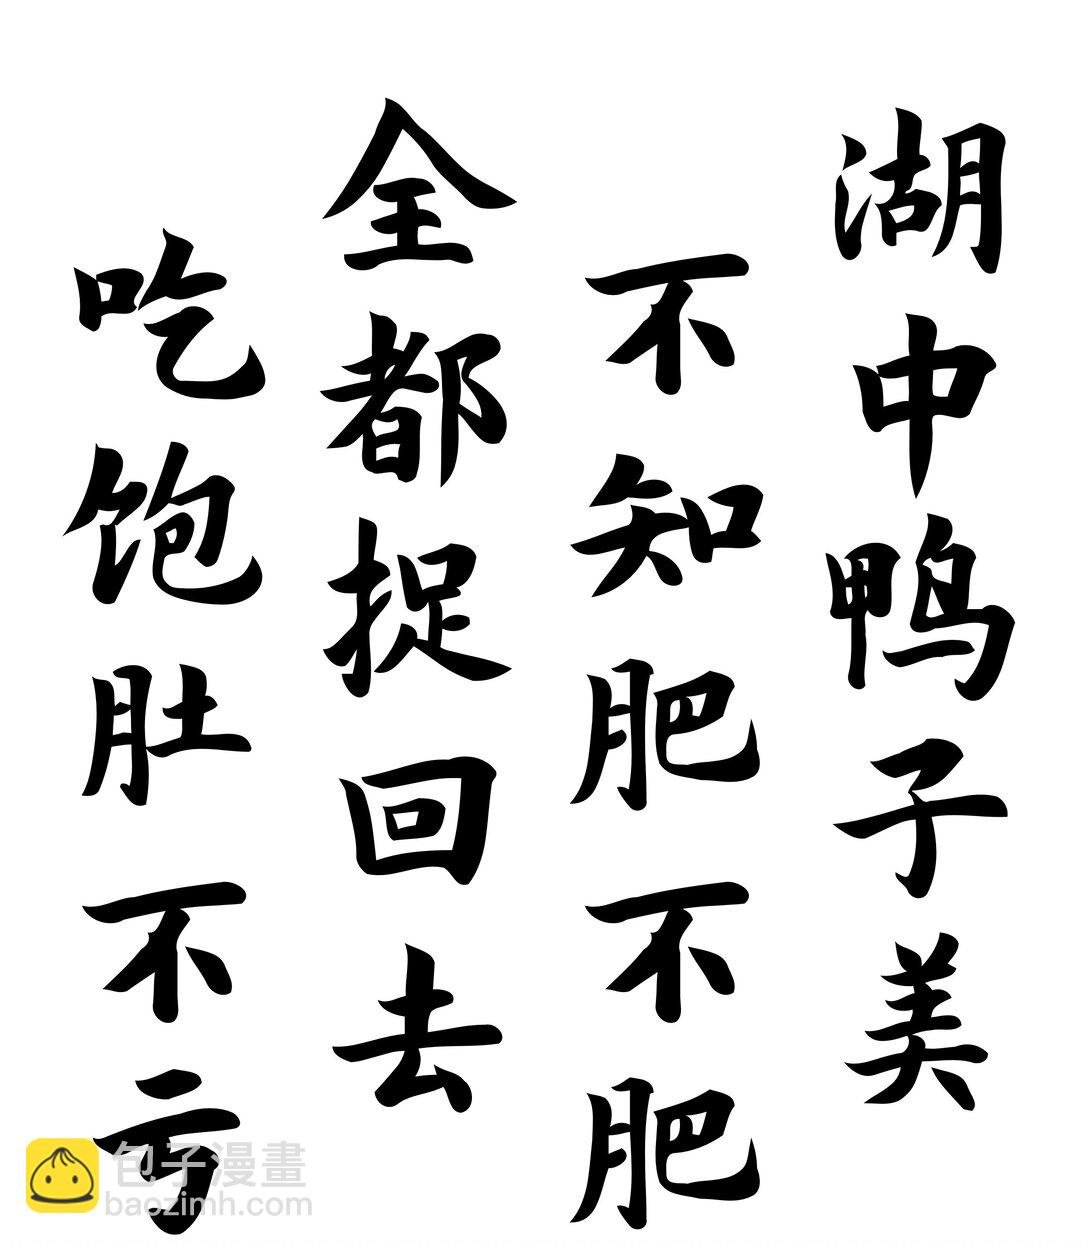 湖中鸭子美
不知肥不肥
全都捉回去
吃饱肚不亏
包子漫畫
baozimh.com